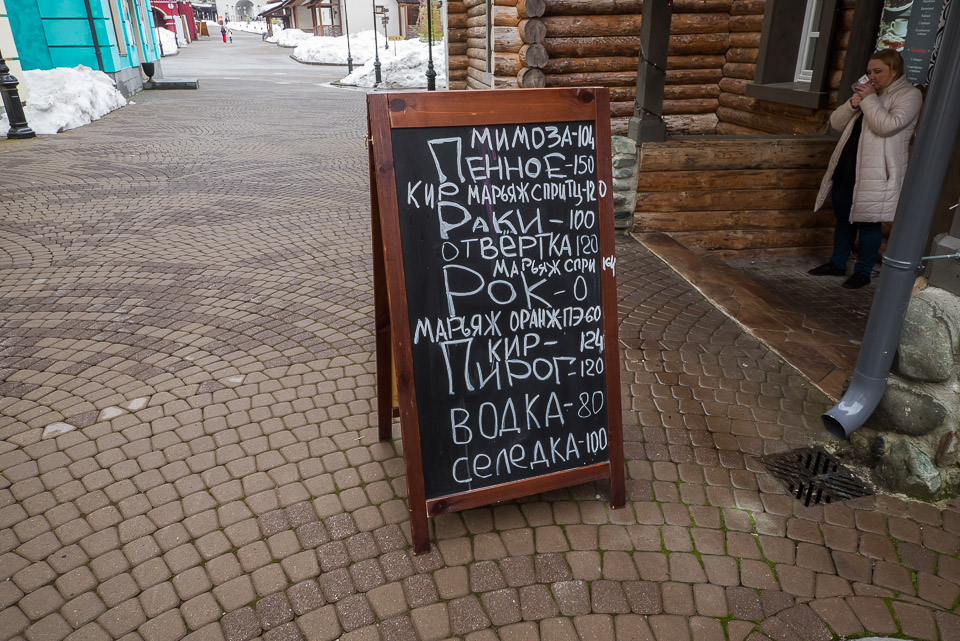 МИМОЗА-104
ПЕННОЕ-150
КИР МАРЬЯЖ СПРИТЦ-120
РАКИ-100
ОТВЁРТКА 120
МАРЬЯЖ СПРИ 164
РОК-0
МАРЬЯЖ ОРАНЖ-ПЭ-60
КИР-124
ПИРОГ-120
ВОДКА-80
СЕЛЕДКА-100